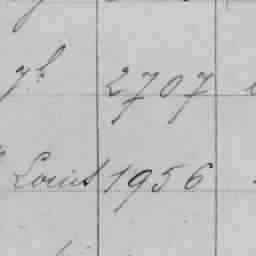 2707
Louis 1956